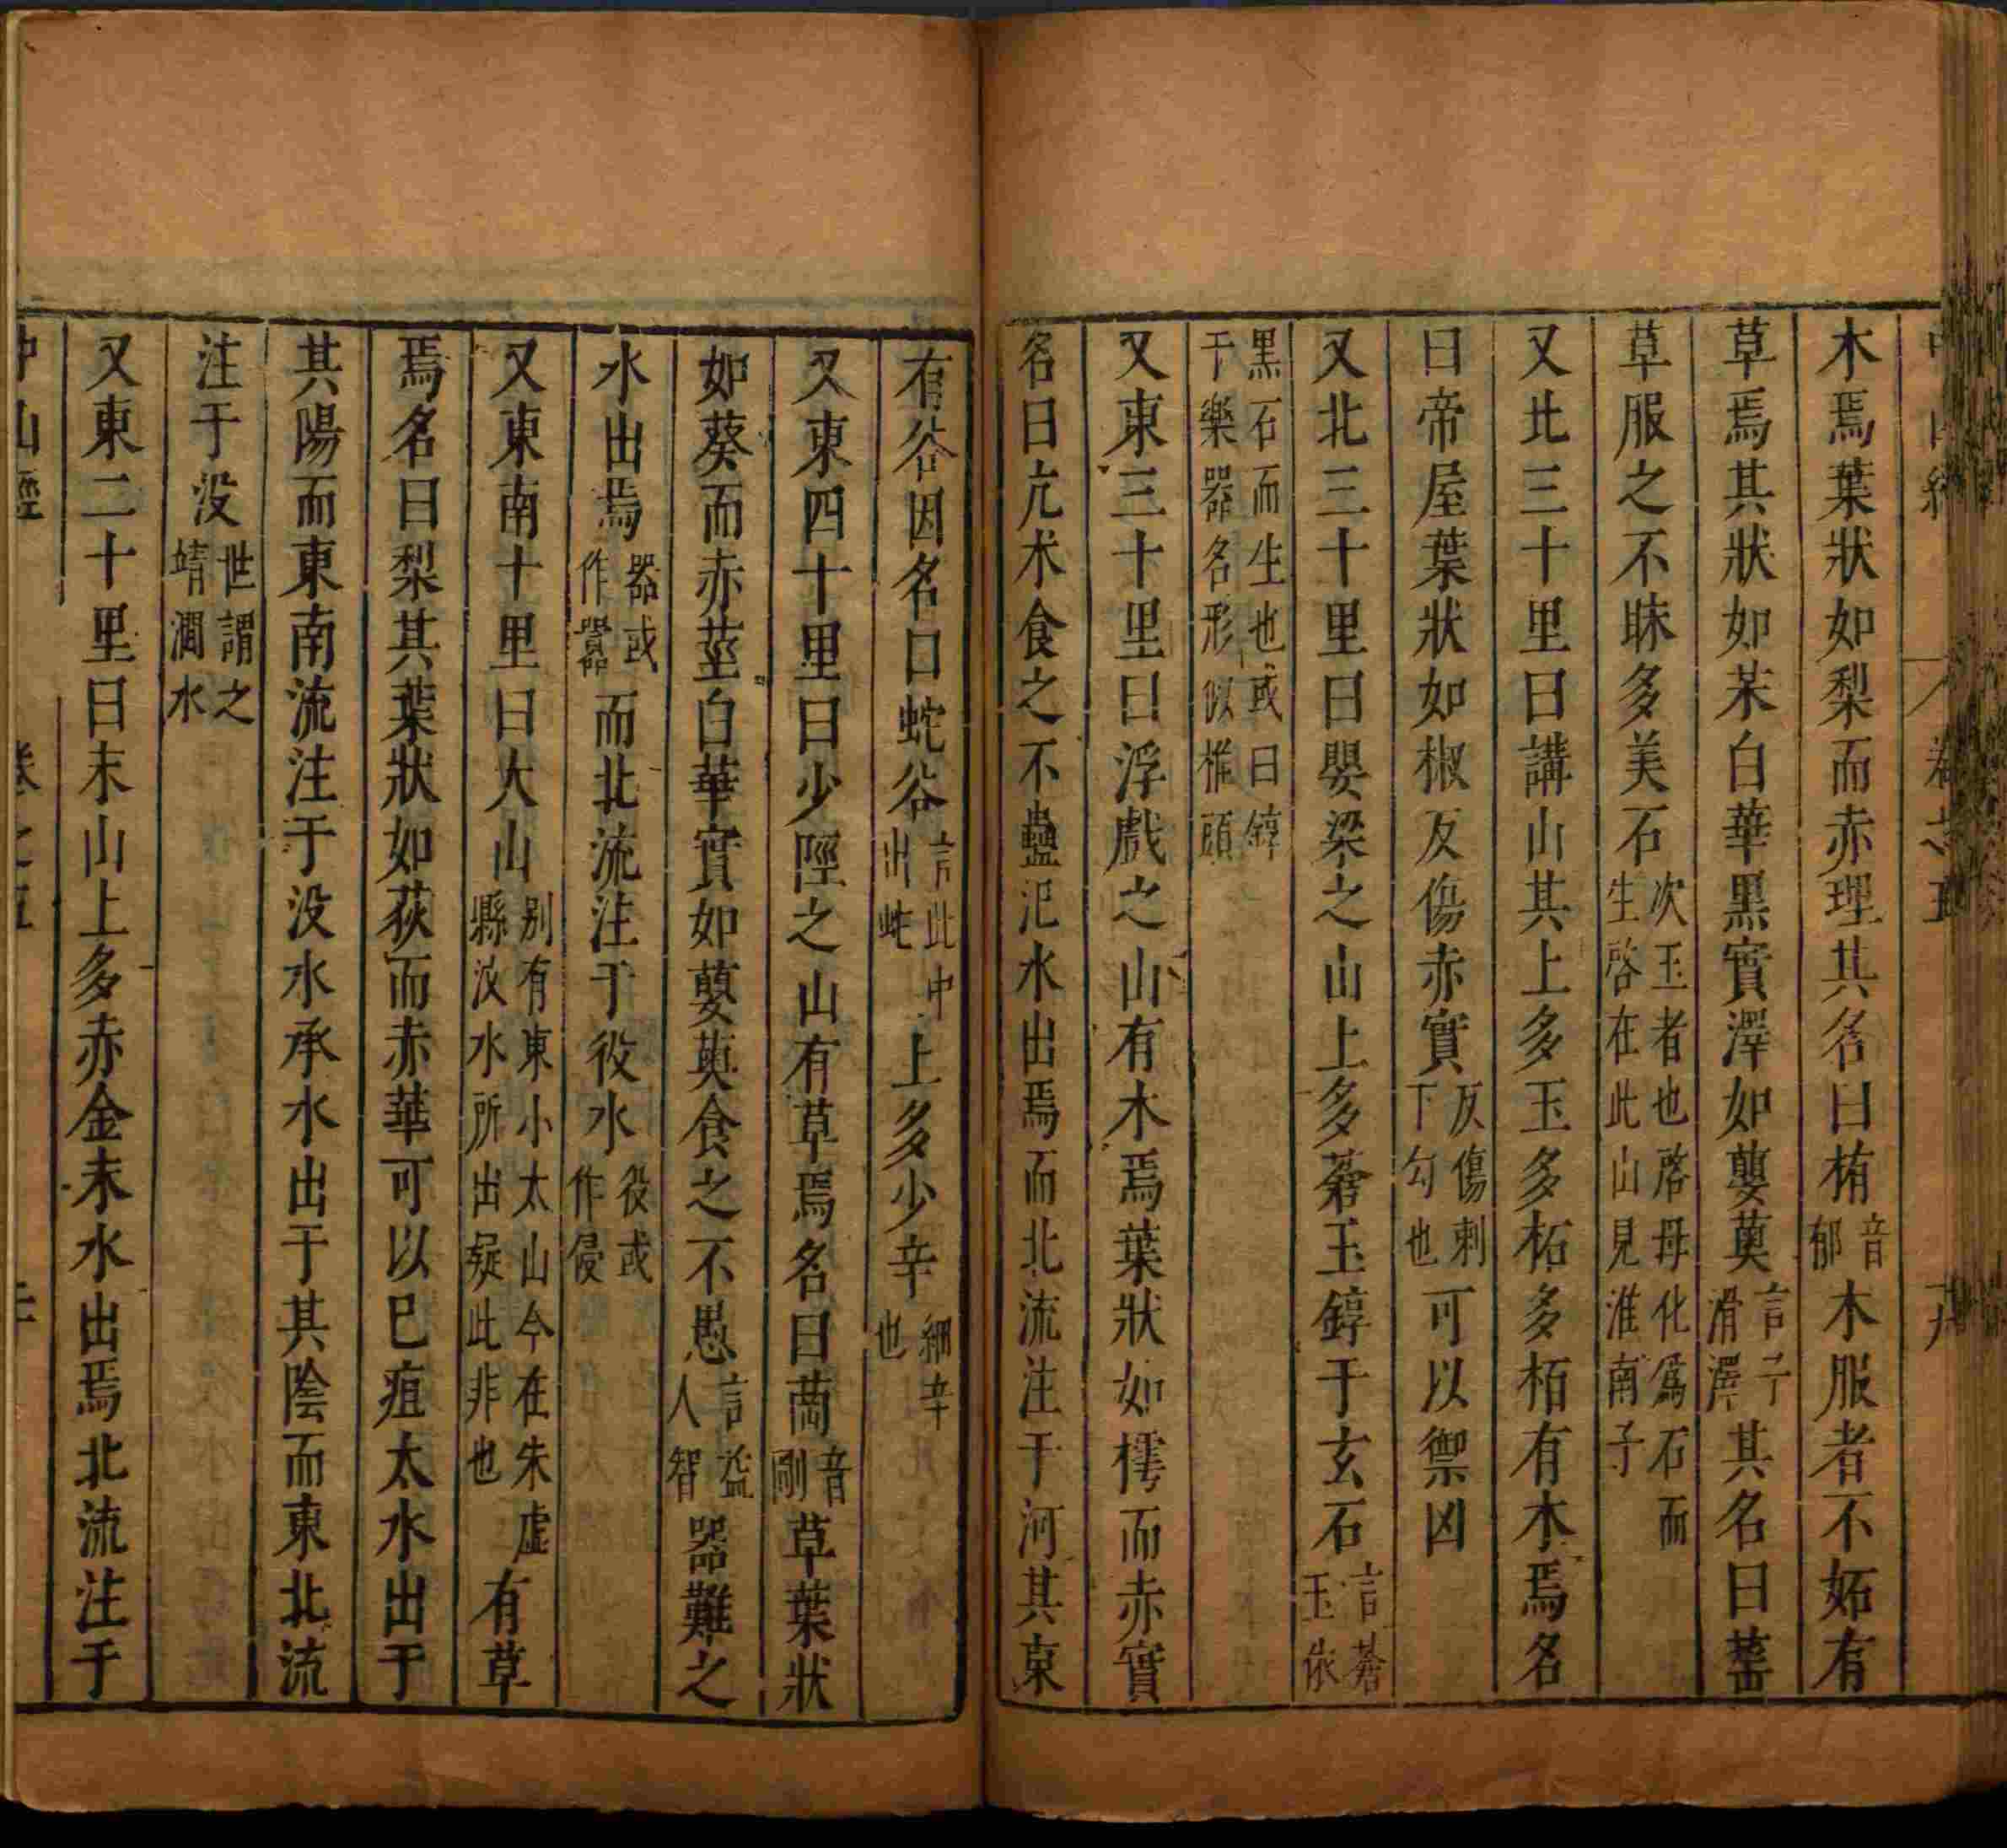 木焉葉狀如梨而赤理其名曰栯音郁木服者不妬有
草焉其狀如茶白華黑實澤如蘡薁言子滑澤其名曰䔄
草服之不眯多美石次玉者也啓母化爲石而生啓在此山見淮南子
又北三十里曰講山其上多玉多柘多栢有木焉名
曰帝屋葉狀如椒反傷赤實反傷刺下勾也可以禦凶
又北三十里曰嬰梁之山上多蒼玉錞于玄石言蒼玉依
黑石而生也或曰錞于樂器名形似椎頭
又東三十里曰浮戲之山有木焉葉狀如樗而赤實
名曰亢木食之不蠱汜水出焉而北流注于河其東
有谷因名曰蛇谷言此中出蛇上多少辛細辛也
又東四十里曰少陘之山有草焉名曰䓘音剛草葉狀
如葵而赤莖白華實如蘡薁食之不愚言益人智器難之
水出焉器或作囂而北流注于役水役或作侵
又東南十里曰大山別有東小太山今在朱虛縣汶水所出疑此非也有草
焉名曰梨其葉狀如荻而赤華可以已疽太水出于
其陽而東南流注于没水承水出于其陰而東北流
注于没世謂之靖澗水
又東二十里曰末山上多赤金末水出焉北流注于